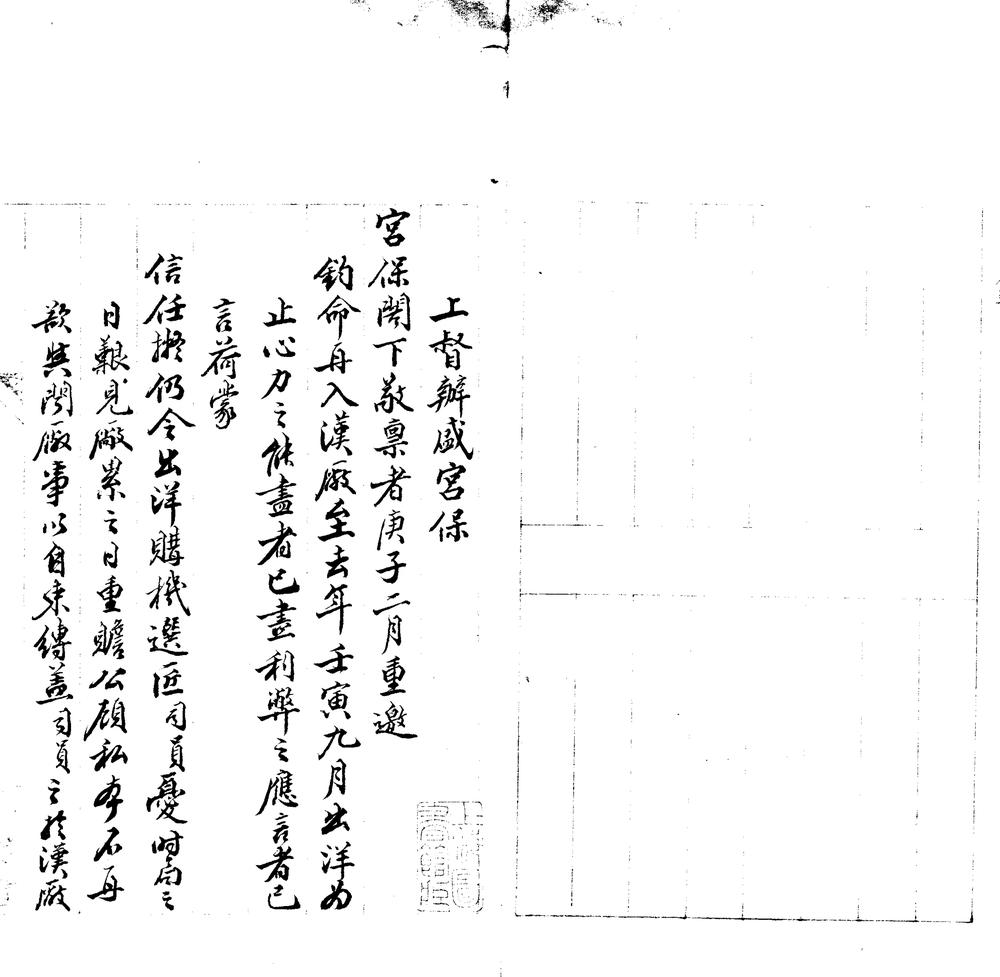 上督辦盛宮保
宮保閣下敬稟者庚子二月重邀
鈞命再入漢廠至去年壬寅九月出洋為
止心力之能盡者已盡利弊之應言者已
言荷蒙
信任擬仍令出洋購機選匠司員憂時局之
日艱見廠累之日重瞻公顧私本不再
欲與聞廠事以自束縛蓋司員之於漢廠